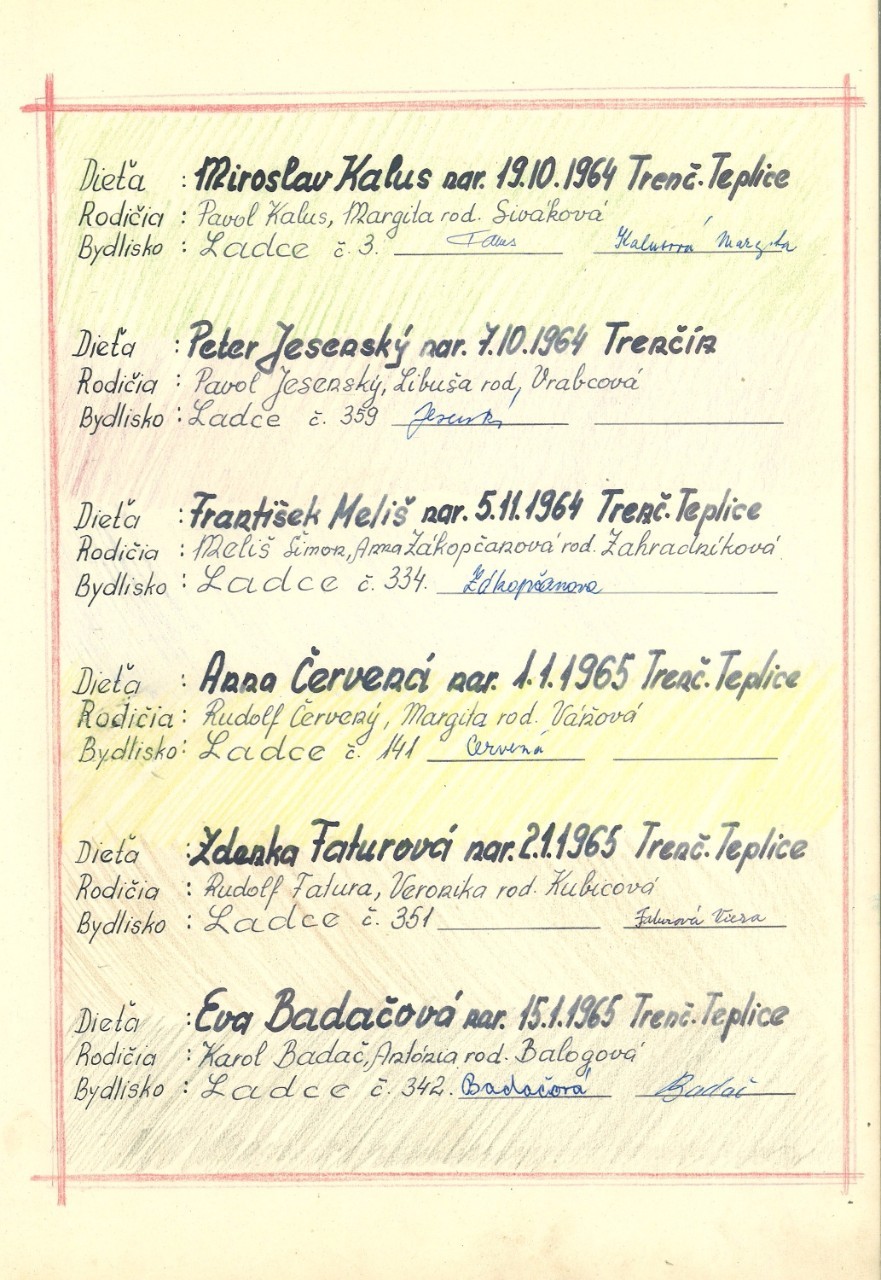 Dieťa : Miroslav Kalus nar. 19.10.1964 Trenč. Teplice
Rodičia : Pavol Kalus, Margita rod. Siváková
Bydlisko : Ladce č. 3. Kalusová Margita
Dieťa : Peter Jesenský nar. 7.10.1964 Trenčín
Rodičia : Pavol Jesenský, Libuša rod, Vrabcová
Bydlisko : Ladce č. 359
Dieťa : František Meliš nar. 5.11.1964 Trenč. Teplice
Rodičia : Meliš Šimon, Anna Zákopčanová rod. Zahradníková
Bydlisko : Ladce č. 334. Zákopčanova
Dieťa : Anna Červená nar. 1.1.1965 Trenč. Teplice
Rodičia : Rudolf Červený, Margita rod. Vážová
Bydlisko : Ladce č. 141 Červená
Dieťa : Zdenka Faturová nar. 2.1.1965 Trenč. Teplice
Rodičia : Rudolf Fatura, Veronika rod. Kubicová
Bydlisko : Ladce č. 351 Faturová Viera
Dieťa : Eva Badačová nar. 15.1.1965 Trenč. Teplice
Rodičia : Karol Badač, Antónia rod. Balogová
Bydlisko : Ladce č. 342. Badačová Badač